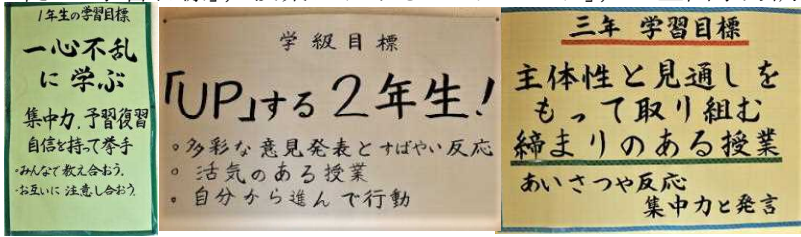 1年生の学習目標
一心不乱
に学ぶ
集中力、予習復習
自信を持って挙手
・みんなで教え合おう。
・お互いに注意し合おう。
学級目標
「UP」する2年生!
。多彩な意見発表とすばやい反応
。活気のある授業
。自分から進んで行動
三年 学習目標
主体性と見通しを
もって取り組む
締まりのある授業
あいさつや反応
集中力と発言